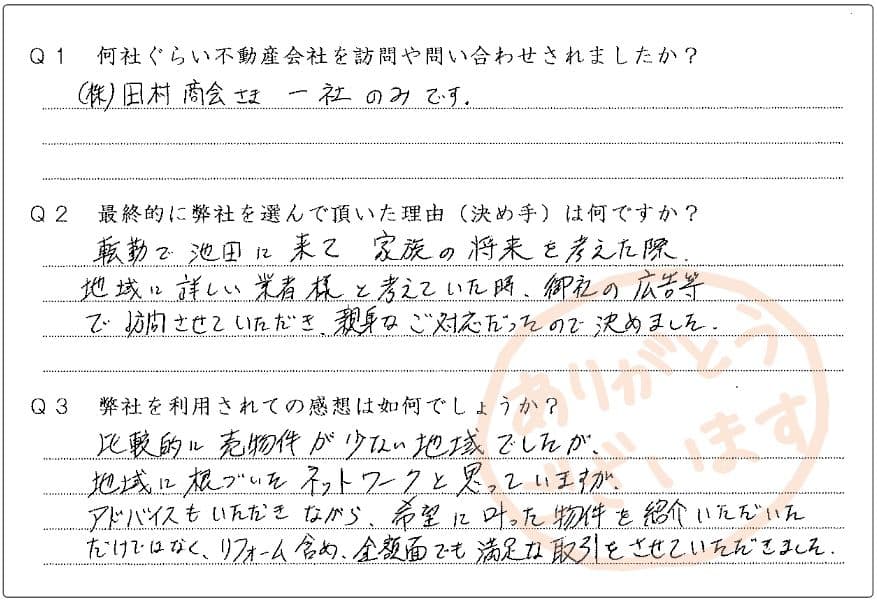 Q1 何社ぐらい不動産会社を訪問や問い合わせされましたか?
(株)田村商会さま 一社のみです.
Q2 最終的に弊社を選んで頂いた理由(決め手)は何ですか?
転勤で池田に来て 家族の将来を考えた際、
地域に詳しい業者様と考えていた時、御社の広告等
で訪問させていただき、親身なご対応だったので決めました.
Q3 弊社を利用されての感想は如何でしょうか?
比較的に売物件が少ない地域でしたが、
地域に根づいたネットワークと思っていますが、
アドバイスもいただきながら、希望に叶った物件を紹介いただいた
だけではなく、リフォーム含め、金額面でも満足な取引をさせていただきました.
ありがとう
ございます